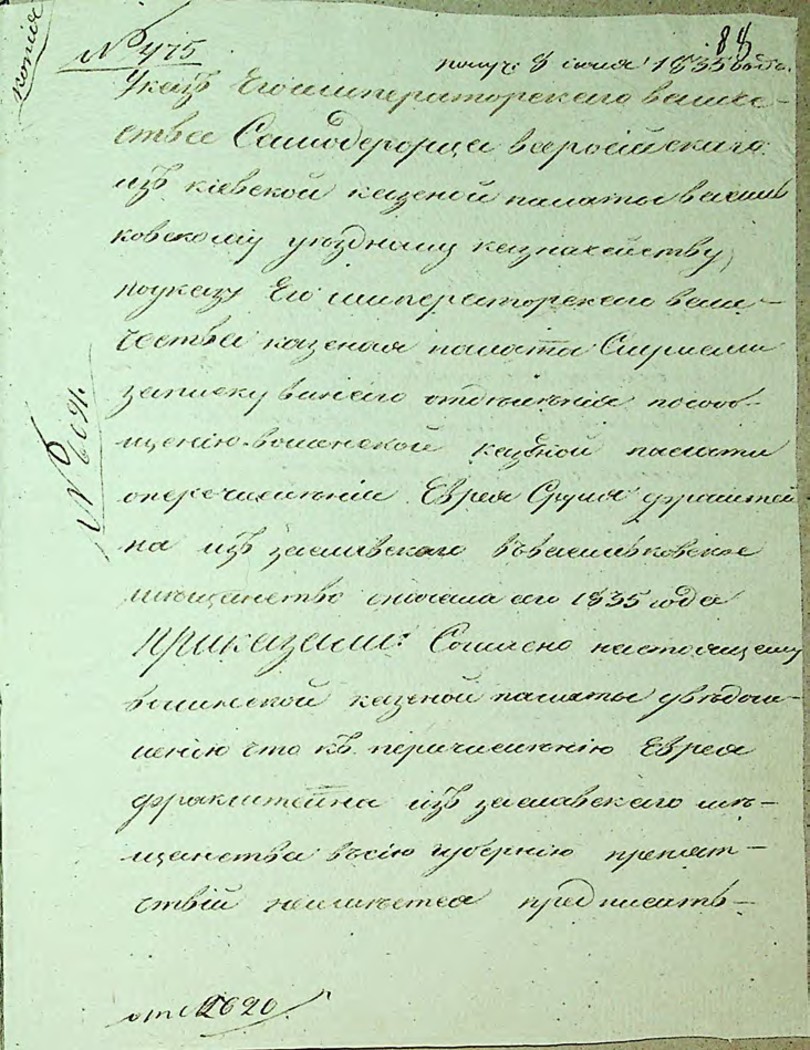 копія
№ 475
88
получ: 8 іюля 1835 года.
Указъ Его императорскаго величе-
ства Самодержца всеросійскаго
изъ кіевской казеной палаты василь
ковскому уѣздному казначейству,
поуказу Его императорскаго вели-
чества казеная палата Слушали
записку винаго отдѣленія посооб-
щенію волинской казеной палати
оперечисленіи Еврея Сруля франштей
на изъ заславскаго въвасильковское
мѣщанство сначала сего 1835 года
Приказали: Согласно настоящему
волинской казеной палаты увѣдом-
ленію что къ перечисленію Еврея
франкштейна изъ заславскаго мѣ-
щанства въсію губернію препят-
ствій неимѣется предписать-